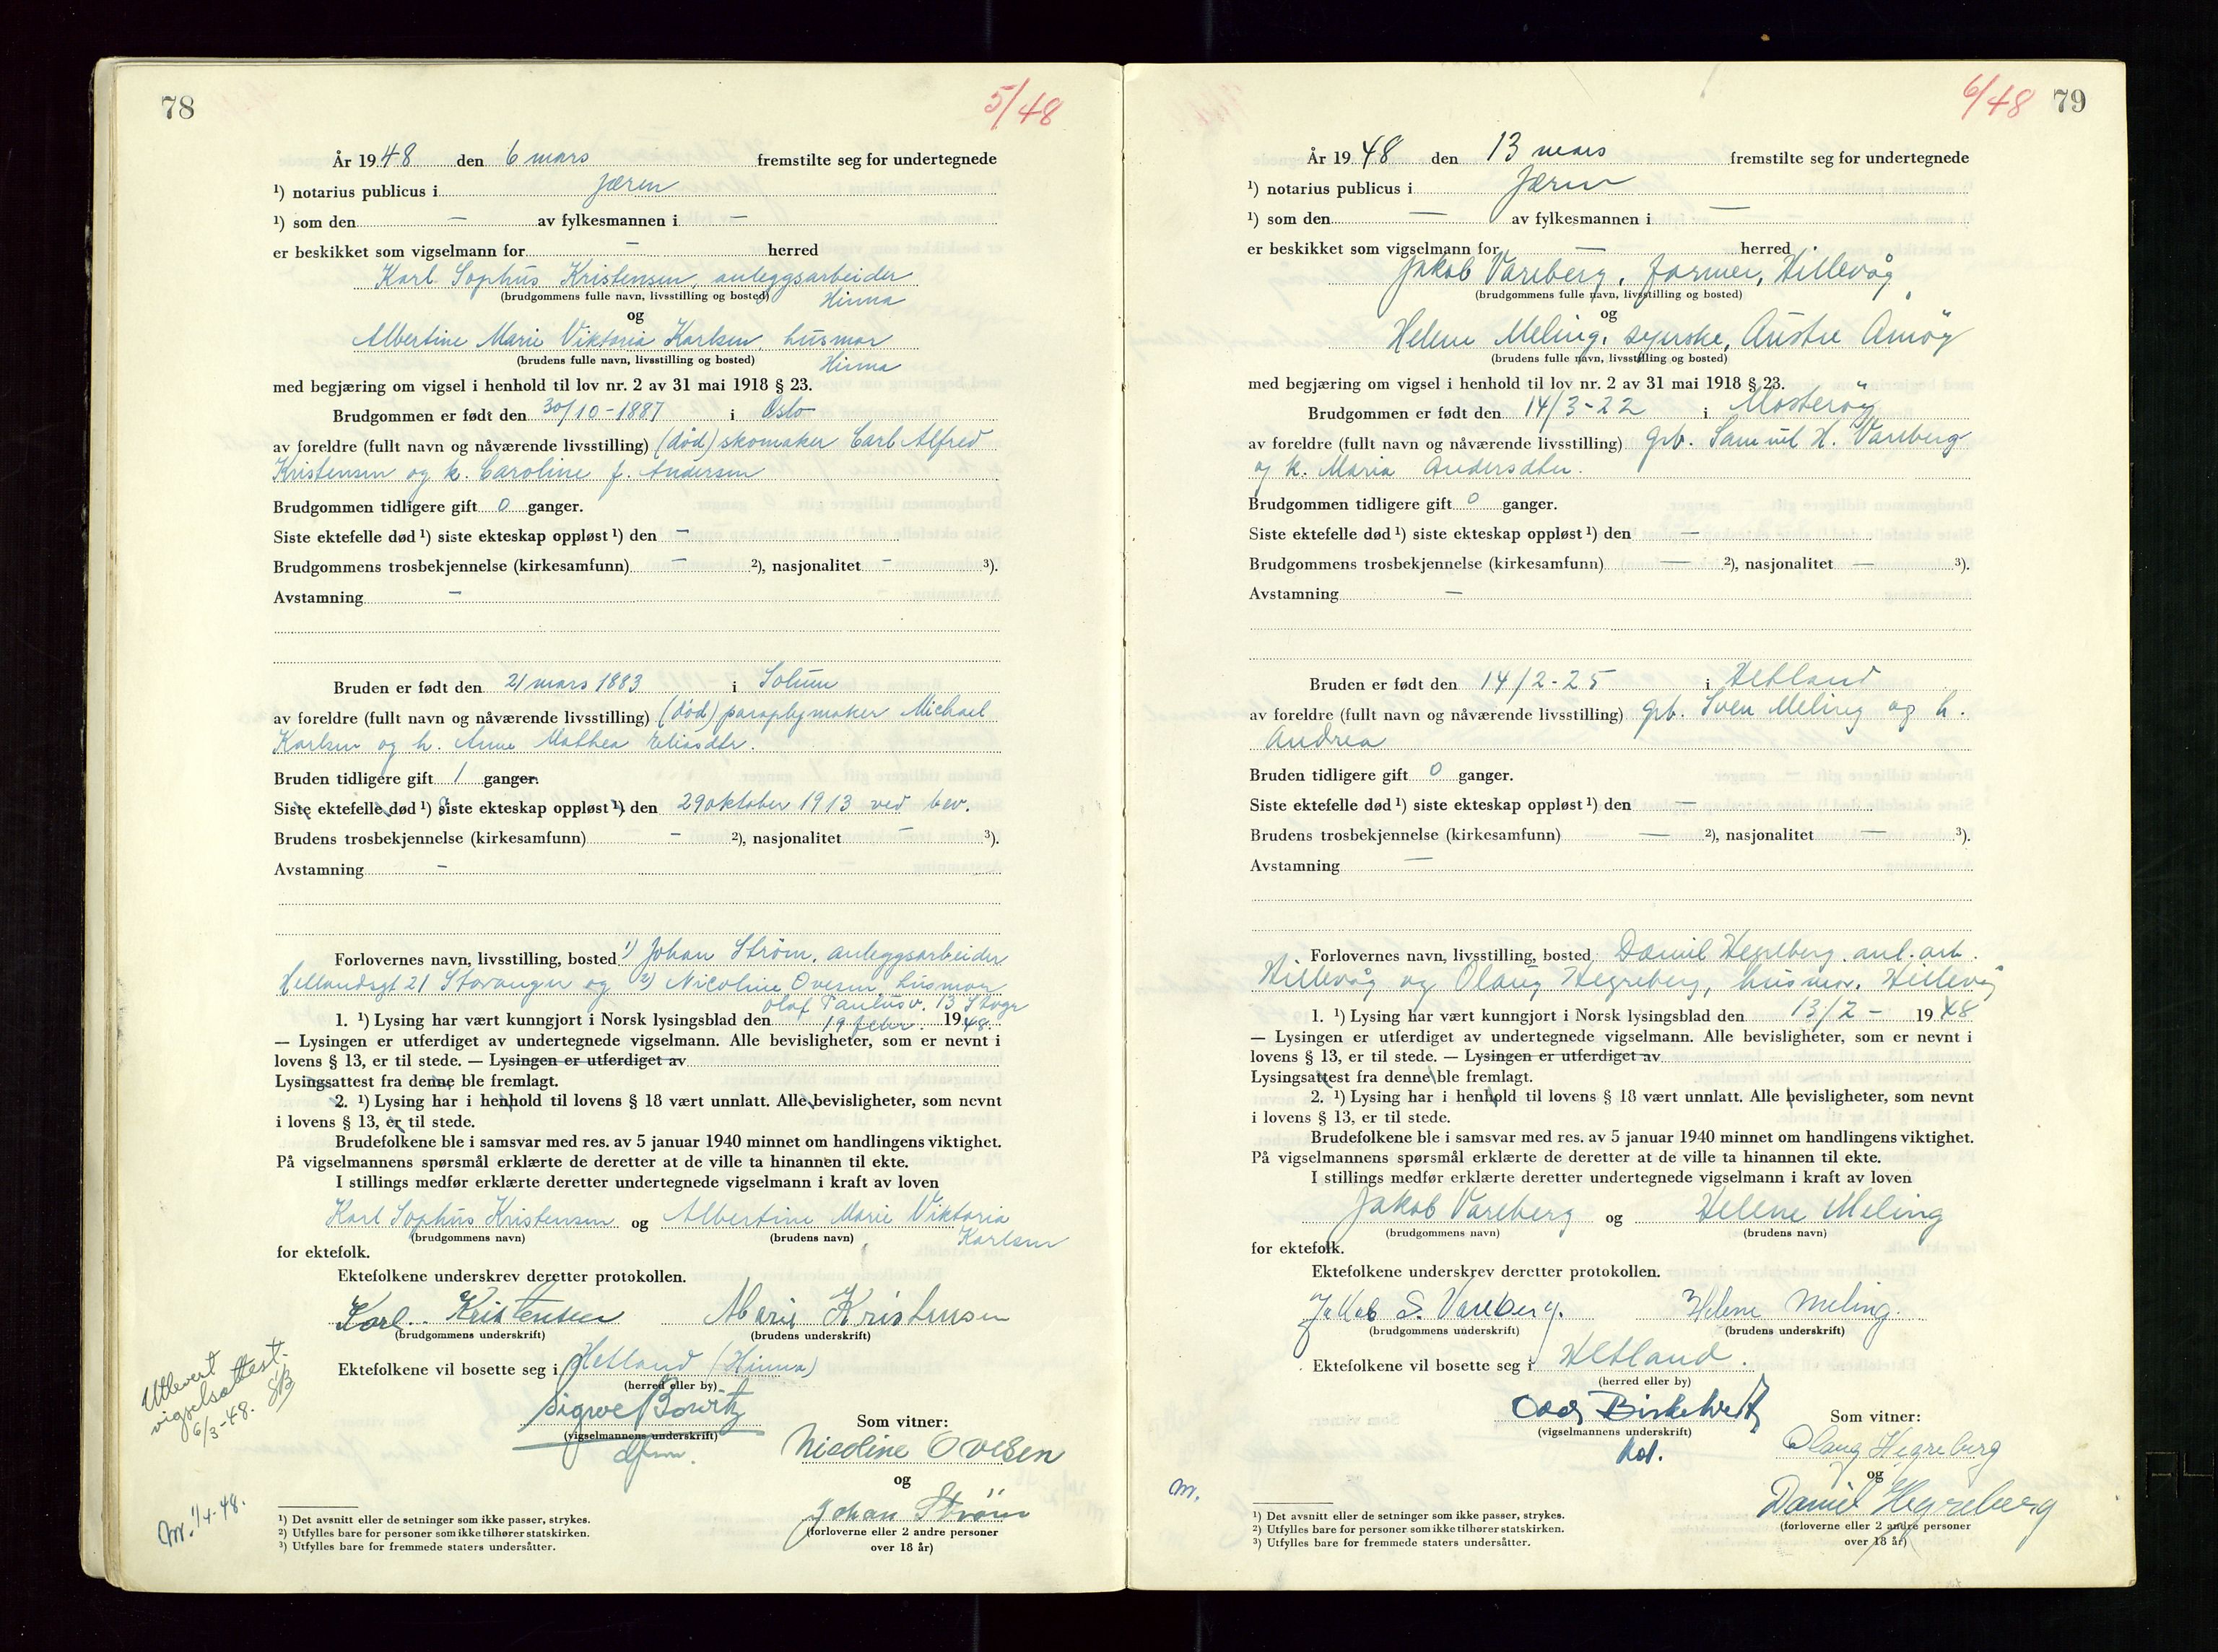 78
5/48
År 1948 den 6 mars fremstilte seg for undertegnede
¹) notarius publicus i Jæren
¹) som den — av fylkesmannen i —
er beskikket som vigselmann for — herred
Karl Sophus Kristensen, anleggsarbeider
(brudgommens fulle navn, livsstilling og bosted) Hinna
og
Albertine Marie Viktoria Karlsen, husmor
(brudens fulle navn, livsstilling og bosted) Hinna
med begjæring om vigsel i henhold til lov nr. 2 av 31 mai 1918 § 23.
Brudgommen er født den 30/10-1887 i Oslo
av foreldre (fullt navn og nåværende livsstilling) (død) skomaker Carl Alfred
Kristensen og k. Caroline f. Andersen
Brudgommen tidligere gift 0 ganger.
Siste ektefelle død ¹) siste ekteskap oppløst ¹) den —
Brudgommens trosbekjennelse (kirkesamfunn) — ²), nasjonalitet — ³).
Avstamning —
Bruden er født den 21 mars 1883 i Solum
av foreldre (fullt navn og nåværende livsstilling) (død) paraplymaker Michael
Karlsen og h. Anne Mathea Eliasdtr.
Bruden tidligere gift 1 ganger.
Siste ektefelle død ¹) Siste ekteskap oppløst ¹) den 29 oktober 1913 ved bev.
Brudens trosbekjennelse (kirkesamfunn) — ²), nasjonalitet — ³).
Avstamning —
Forlovernes navn, livsstilling, bosted ¹) Johan Strøm, anleggsarbeider
Hellandsgt 21 Stavanger og ²) Nicoline Ovesen, husmor
Olaf Paulusv. 13 Stvgr
1. ¹) Lysing har vært kunngjort i Norsk lysingsblad den 19 febr. 1948.
— Lysingen er utferdiget av undertegnede vigselmann. Alle bevisligheter, som er nevnt i
lovens § 13, er til stede. — Lysingen er utferdiget av
Lysingsattest fra denne ble fremlagt.
2. ¹) Lysing har i henhold til lovens § 18 vært unnlatt. Alle bevisligheter, som nevnt
i lovens § 13, er til stede.
Brudefolkene ble i samsvar med res. av 5 januar 1940 minnet om handlingens viktighet.
På vigselmannens spørsmål erklærte de deretter at de ville ta hinannen til ekte.
I stillings medfør erklærte deretter undertegnede vigselmann i kraft av loven
Karl Sophus Kristensen og Albertine Marie Viktoria
(brudgommens navn) (brudens navn) Karlsen
for ektefolk.
Ektefolkene underskrev deretter protokollen.
Karl Kristensen Marie Kristensen
(brudgommens underskrift) (brudens underskrift)
Ektefolkene vil bosette seg i Hetland (Hinna)
(herred eller by)
Sigwe
(vigselmannens underskrift)
Som vitner:
Nicoline Ovesen
og
Johan Strøm
(forloverne eller 2 andre personer
over 18 år)
Utlevert
vigselsattest.
6/3-48.
M. 1/4-48.
¹) Det avsnitt eller de setninger som ikke passer, strykes.
²) Utfylles bare for personer som ikke tilhører statskirken.
³) Utfylles bare for fremmede staters undersåtter.
6/48
79
År 1948 den 13 mars fremstilte seg for undertegnede
¹) notarius publicus i Jæren
¹) som den — av fylkesmannen i —
er beskikket som vigselmann for — herred
Jakob Vareberg, farmer, Hillevåg
(brudgommens fulle navn, livsstilling og bosted)
og
Helene Meling, syerske, Austre Amöy
(brudens fulle navn, livsstilling og bosted)
med begjæring om vigsel i henhold til lov nr. 2 av 31 mai 1918 § 23.
Brudgommen er født den 14/3-22 i Mosteröy
av foreldre (fullt navn og nåværende livsstilling) grb. Samuel H. Vareberg
og k. Maria Andersdtr.
Brudgommen tidligere gift 0 ganger.
Siste ektefelle død ¹) siste ekteskap oppløst ¹) den —
Brudgommens trosbekjennelse (kirkesamfunn) — ²), nasjonalitet — ³).
Avstamning —
Bruden er født den 14/2-25 i Hetland
av foreldre (fullt navn og nåværende livsstilling) grb. Sven Meling og h.
Andrea
Bruden tidligere gift 0 ganger.
Siste ektefelle død ¹) siste ekteskap oppløst ¹) den —
Brudens trosbekjennelse (kirkesamfunn) — ²), nasjonalitet — ³).
Avstamning —
Forlovernes navn, livsstilling, bosted Daniel Hegreberg, anl. arb.
Hillevåg og Olaug Hegreberg, husmor. Hillevåg
1. ¹) Lysing har vært kunngjort i Norsk lysingsblad den 13/2 - 1948
— Lysingen er utferdiget av undertegnede vigselmann. Alle bevisligheter, som er nevnt i
lovens § 13, er til stede. — Lysingen er utferdiget av
Lysingsattest fra denne ble fremlagt.
2. ¹) Lysing har i henhold til lovens § 18 vært unnlatt. Alle bevisligheter, som nevnt
i lovens § 13, er til stede.
Brudefolkene ble i samsvar med res. av 5 januar 1940 minnet om handlingens viktighet.
På vigselmannens spørsmål erklærte de deretter at de ville ta hinannen til ekte.
I stillings medfør erklærte deretter undertegnede vigselmann i kraft av loven
Jakob Vareberg og Helene Meling
(brudgommens navn) (brudens navn)
for ektefolk.
Ektefolkene underskrev deretter protokollen.
Jakob S. Vareberg. Helene Meling.
(brudgommens underskrift) (brudens underskrift)
Ektefolkene vil bosette seg i Hetland.
(herred eller by)
Odd
(vigselmannens underskrift)
Som vitner:
Olaug Hegreberg
og
Daniel Hegreberg
(forloverne eller 2 andre personer
over 18 år)
M.
¹) Det avsnitt eller de setninger som ikke passer, strykes.
²) Utfylles bare for personer som ikke tilhører statskirken.
³) Utfylles bare for fremmede staters undersåtter.